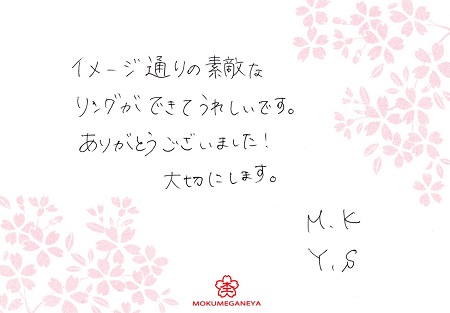 イメージ通りの素敵な
リングができてうれしいです。
ありがとうございました！
大切にします。
M. K
Y. S
MOKUMEGANEYA